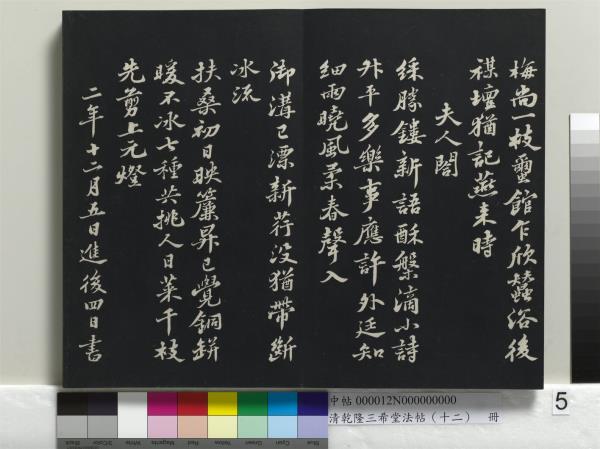 梅尚一枝蠶館乍欣蠶浴後
禖壇猶記燕来時
夫人閤
綵勝鏤新語酥槃滴小詩
升平多樂事應許外廷知
細雨曉風柔春聲入
御溝已漂新荇没猶帶斷
冰流
扶桑初日映簾昇已覺銅缾
暖不冰七種共挑人日菜千枝
先剪上元燈
二年十二月五日進後四日書
中帖 000012N000000000
清乾隆三希堂法帖（十二） 冊
5
Black
3/Color
White
Magenta
Red
Yellow
Green
Cyan
Blue